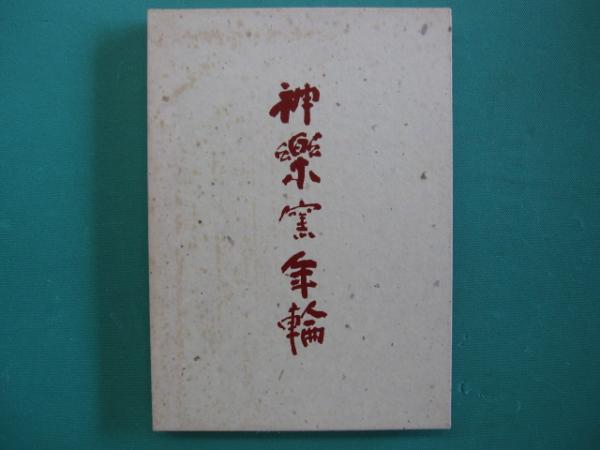 神樂窯年輪